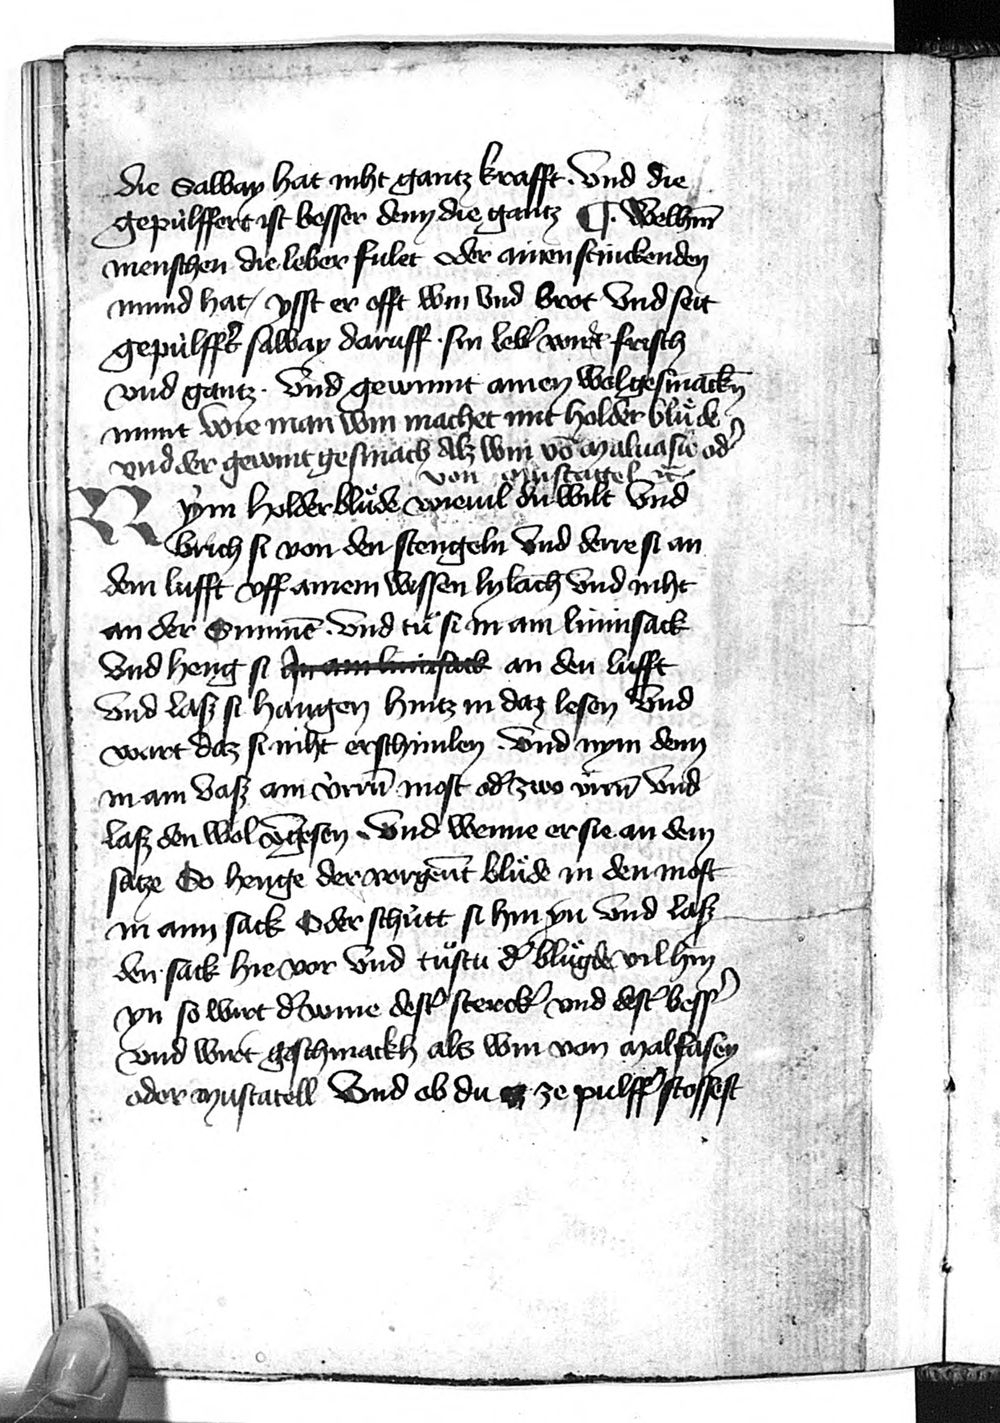 die Salway hat niht gantz krafft . Vnd die
gepùlffert ist besser denn die gantz ¶ . Welhm̄
menschen die leber fulet oder ainen stinckenden
mund hat / ysst er offt win vnd brot Vnd seit
gepùlfft salway daruff . sin leb' wirt frisch
vnd gantz . Vnd gewinnt ainen wolgesmackn̄
munt Wie man win machet mit holder blůde
vnd der gewint gesmach Alz win vō Maluasie od'
von Mustatgel
Nym holder blůde wieuil du wilt Vnd
brich si von den stengeln Vnd derre si an
dem lufft vff ainem wissen lylach Vnd niht
an der Sunnē . Vnd tů si in ain linin sack
Vnd heng si an den lufft
Vnd laß si hangen hintz in daz lesen Vnd
wart daz si niht erschimlen . Vnd nym denn
in ain vaß ain v̈rrn̄ most od' zwo v̈rrn̄ Vnd
laß den wol Vnd wenne er sie an dem
satze So henge der blůde in den most
in ainn sack Oder schùtt si hin yn Vnd laß
den sack hie vor Vnd tůstu d' blůgde vil hin
yn so wirt d' wine dest' sterck' vnd dest' bess'
vnd wirt geschmackh als win von Malfasey
oder Mustatell Vnd ob du ze pulff' stossest